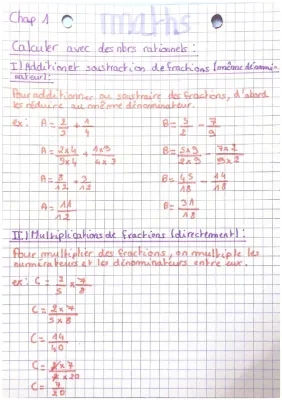 Chap 1 maths
Calculer avec des nbrs rationnels :
I) Addition et soustraction de fractions (même dénomi-
nateur) :
Pour additionner ou soustraire des fractions, d'abord
les réduire au même dénominateur.
ex : A = 2/3 + 1/4 B = 5/2 - 7/9
A = 2×4/3×4 + 1×3/4×3 B = 5×9/2×9 - 7×2/9×2
A = 8/12 + 3/12 B = 45/18 - 14/18
A = 11/12 B = 31/18
II) Multiplications de fractions (directement) :
Pour multiplier des fractions, on multiplie les
numérateurs et les dénominateurs entre eux.
ex : C = 2/5 × 7/8
C = 2×7/5×8
C = 14/40
C = 2×7/2×20
C = 7/20